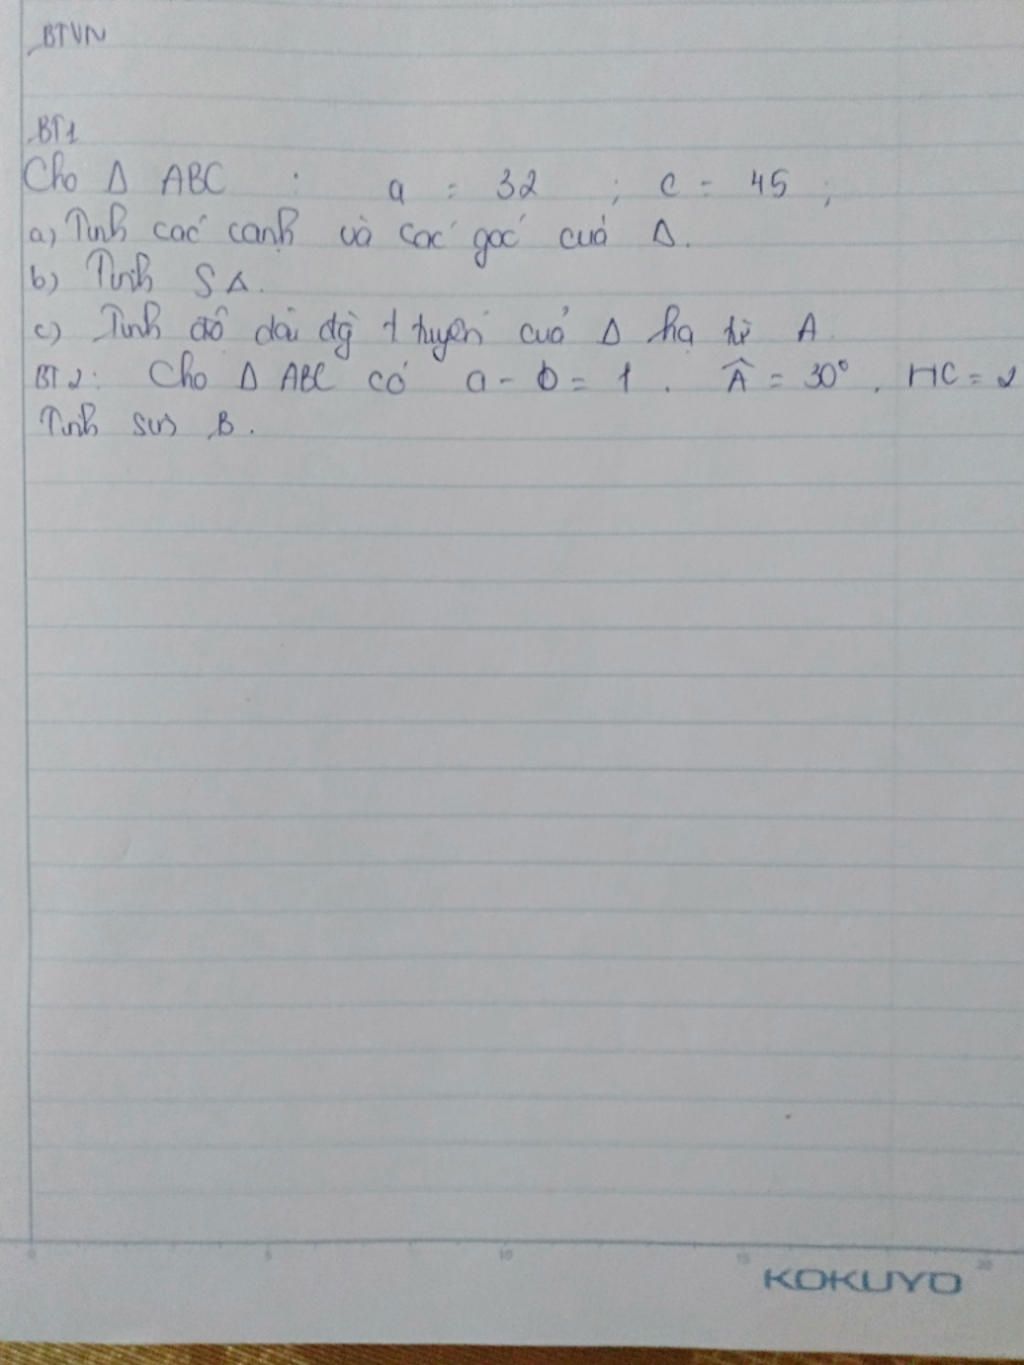 BTVN
BT1
Cho Δ ABC : a = 32 ; c = 45 ;
a) Tính các cạnh và các góc của Δ.
b) Tính SΔ.
c) Tính độ dài đg t tuyến của Δ hạ từ A.
BT2: Cho Δ ABC có a - b = 1. Â = 30°, HC = 2
Tính sin B.
0 5 10 15 20
KOKUYO